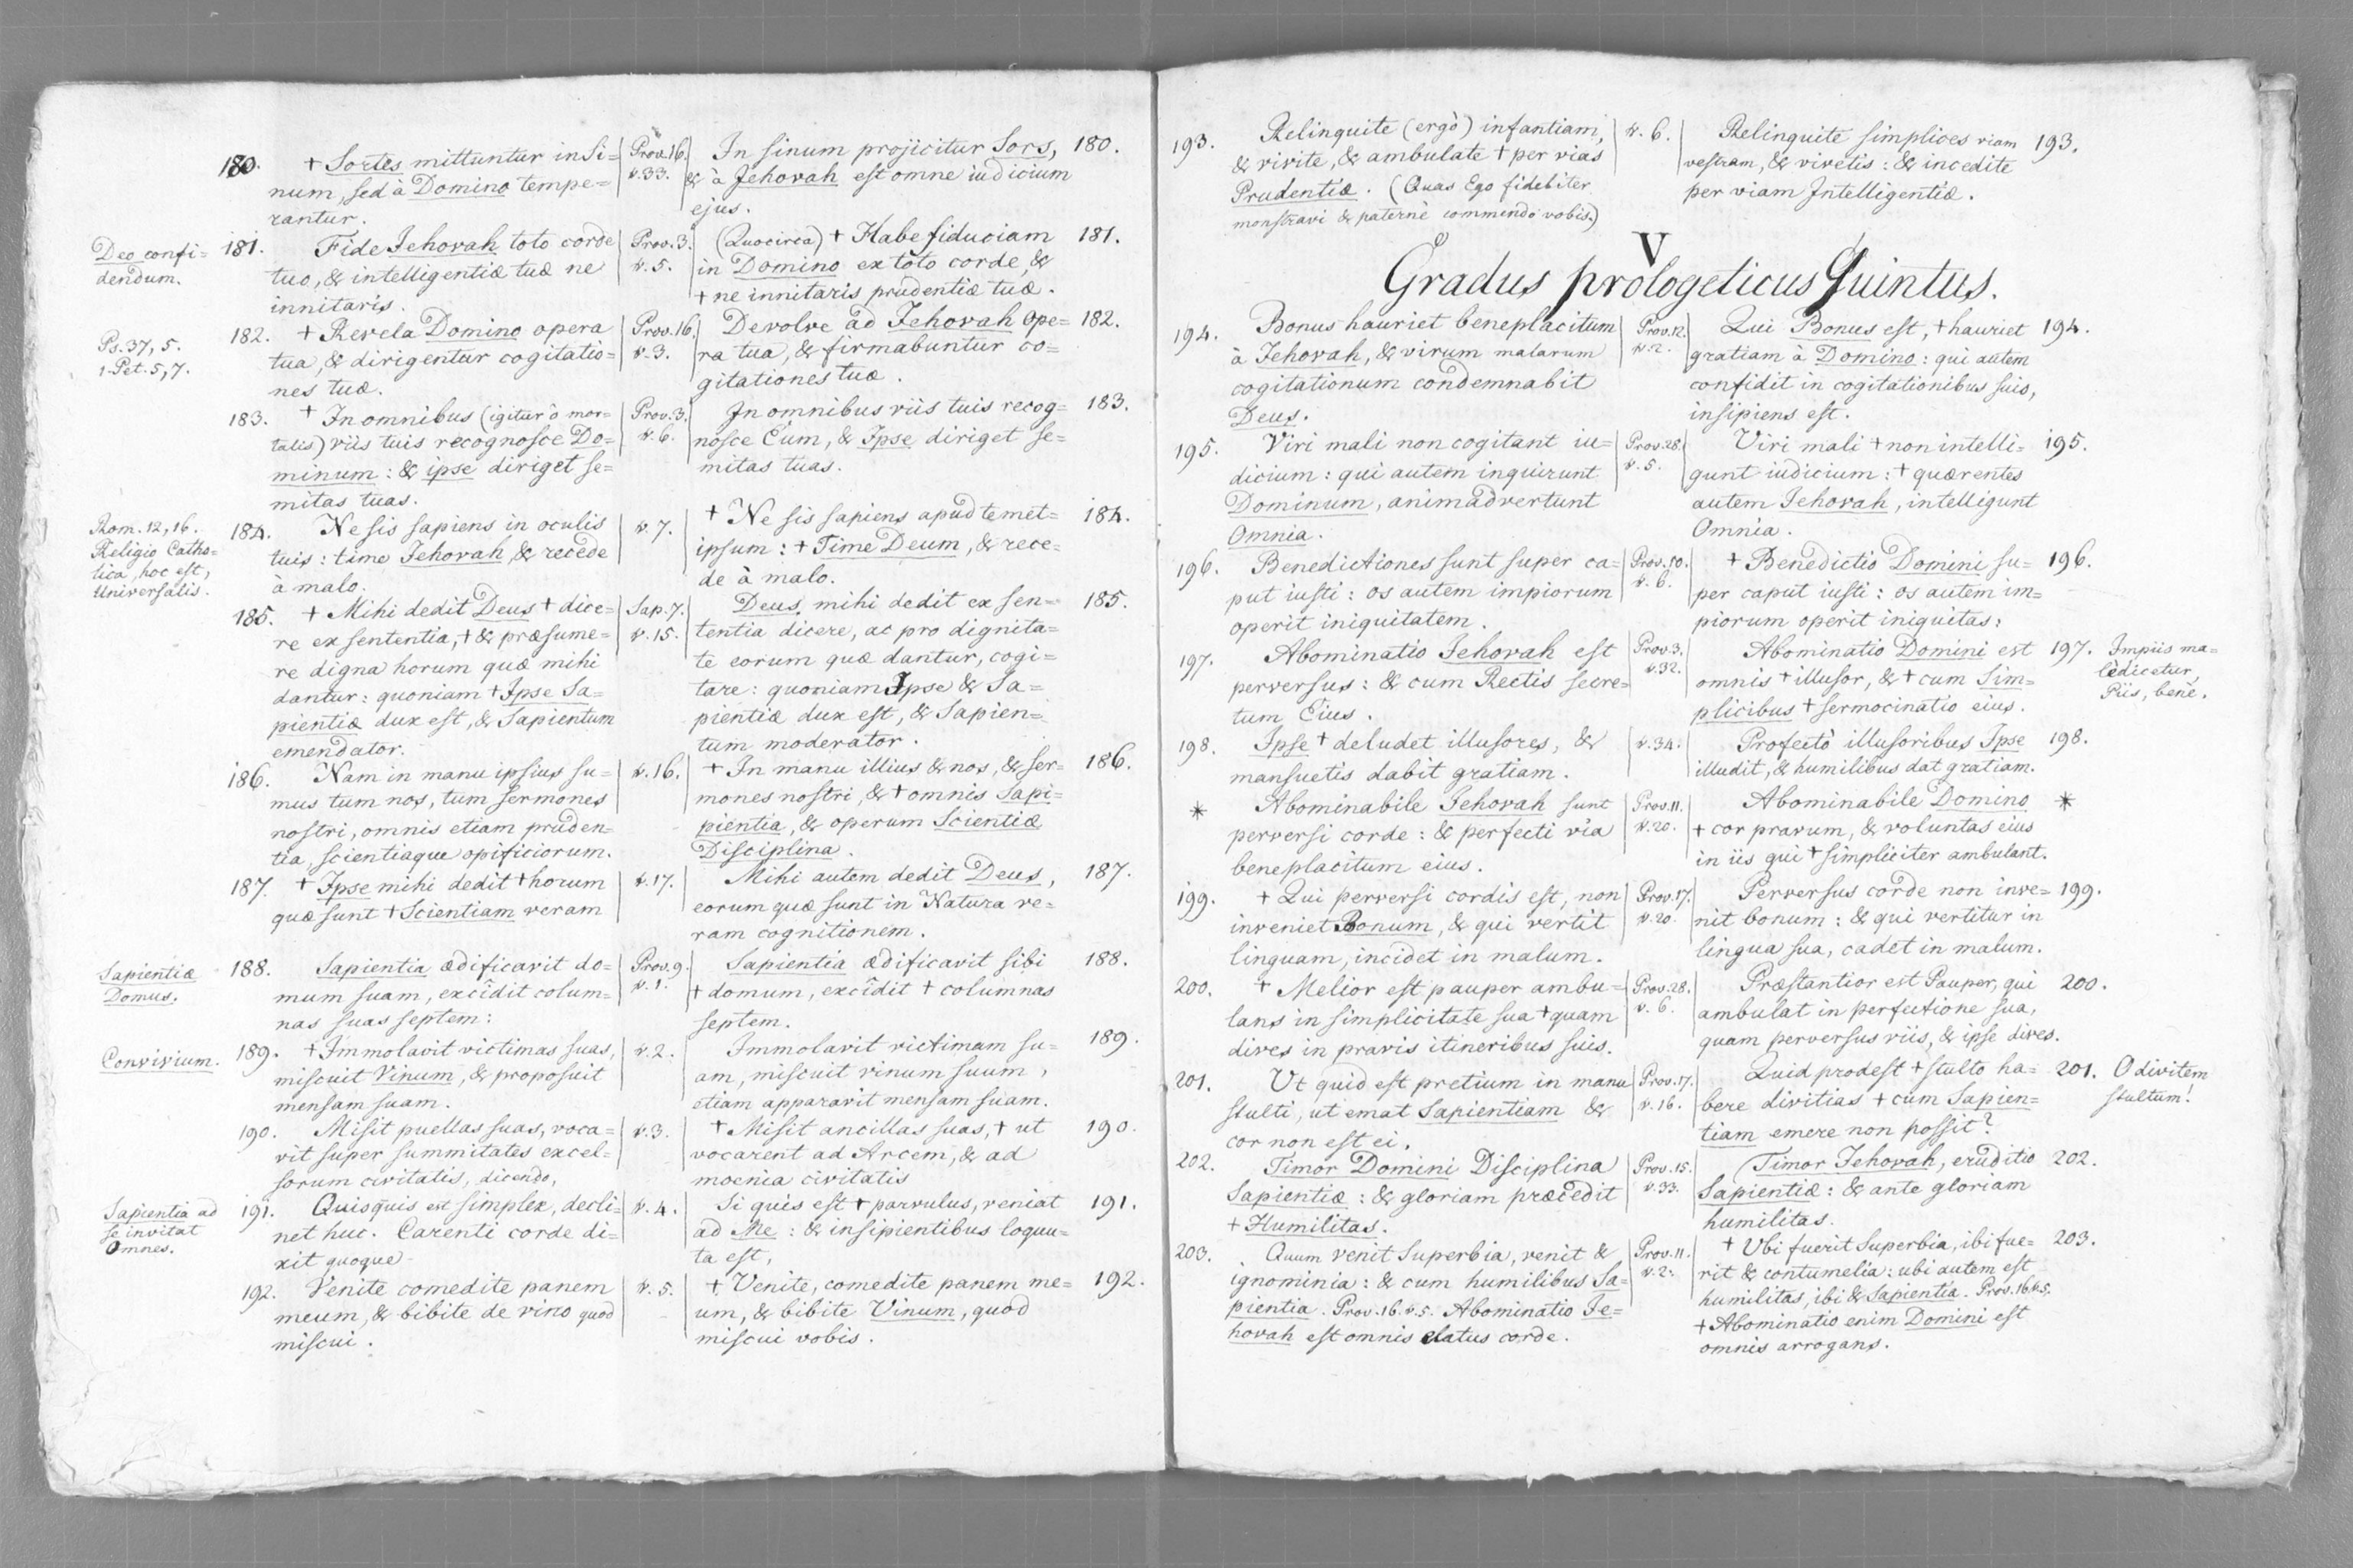 180.
+ Sortes mittuntur in si=
num, sed à Domino tempe=
rantur.
Prov. 16.
v. 33.
In sinum projicitur Sors,
& à Jehovah est omne iudicium
ejus.
180.
Deo confi=
dendum.
181.
Fide Jehovah toto corde
tuo, & intelligentiæ tuæ ne
innitaris.
Prov. 3.
v. 5.
(Quocirca) + Habe fiduciam
in Domino ex toto corde, &
+ ne innitaris prudentiæ tuæ.
181.
Ps. 37, 5.
1. Pet. 5, 7.
182.
+ Revela Domino opera
tua, & dirigentur cogitatio=
nes tuæ.
Prov. 16.
v. 3.
Devolve ad Jehovah ope=
ra tua, & firmabuntur co=
gitationes tuæ.
182.
183.
+ In omnibus (igitur ô mor=
talis) viis tuis recognosce Do=
minum: & ipse diriget se=
mitas tuas.
Prov. 3.
v. 6.
In omnibus viis tuis recog=
nosce Eum, & Ipse diriget se=
mitas tuas.
183.
Rom. 12, 16.
Religio Catho=
lica, hoc est,
Universalis.
184.
Ne sis sapiens in oculis
tuis: time Jehovah, & recede
à malo.
v. 7.
+ Ne sis sapiens apud temet=
ipsum: + Time Deum, & rece=
de à malo.
184.
185.
+ Mihi dedit Deus + dice=
re ex sententia, + & præsume=
re digna horum quæ mihi
dantur: quoniam + Ipse Sa=
pientiæ dux est, & Sapientum
emendator.
Sap. 7.
v. 15.
Deus mihi dedit ex sen=
tentia dicere, ac pro dignita=
te eorum quæ dantur, cogi=
tare: quoniam Ipse & Sa=
pientiæ dux est, & Sapien=
tum moderator.
185.
186.
Nam in manu ipsius su=
mus tum nos, tum sermones
nostri, omnis etiam pruden=
tia, scientiaque opificiorum.
v. 16.
+ In manu illius & nos, & ser=
mones nostri, & + omnis Sapi=
pientia, & operum Scientiæ
Disciplina.
186.
187.
+ Ipse mihi dedit + horum
quæ sunt + Scientiam veram
v. 17.
Mihi autem dedit Deus,
eorum quæ sunt in Natura ve=
ram cognitionem.
187.
Sapientiæ
Domus.
188.
Sapientia ædificavit do=
mum suam, excîdit colum=
nas suas septem:
Prov. 9.
v. 1.
Sapientia ædificavit sibi
+ domum, excîdit + columnas
septem.
188.
Convivium.
189.
+ Immolavit victimas suas,
miscuit Vinum, & proposuit
mensam suam.
v. 2.
Immolavit victimam su=
am, miscuit vinum suum,
etiam apparavit mensam suam.
189.
190.
Misit puellas suas, voca=
vit super summitates excel=
sorum civitatis, dicendo,
v. 3.
+ Misit ancillas suas, + ut
vocarent ad Arcem, & ad
moenia civitatis
190.
Sapientia ad
se invitat
Omnes.
191.
Quisquis est simplex, decli=
net huc. Carenti corde di=
xit quoque
v. 4.
Si quis est + parvulus, veniat
ad Me: & insipientibus loquu=
ta est,
191.
192.
Venite comedite panem
meum, & bibite de vino quod
miscui.
v. 5.
+ Venite, comedite panem me=
um, & bibite Vinum, quod
miscui vobis.
192.
193.
Relinquite (ergò) infantiam,
& vivite, & ambulate + per vias
Prudentiæ. (Quas Ego fideliter
monstravi & paternè commendo vobis.)
v. 6.
Relinquite simplices viam
vestram, & vivetis: & incedite
per viam Intelligentiæ.
193.
V
Gradus prologeticus Quintus.
194.
Bonus hauriet beneplacitum
à Jehovah, & virum malarum
cogitationum condemnabit
Deus.
Prov. 12.
v. 2.
Qui Bonus est, + hauriet
gratiam à Domino: qui autem
confidit in cogitationibus suis,
insipiens est.
194.
195.
Viri mali non cogitant iu=
dicium: qui autem inquirunt
Dominum, animadvertunt
Omnia.
Prov. 28.
v. 5.
Viri mali + non intelli=
gunt iudicium: + quærentes
autem Jehovah, intelligunt
Omnia.
195.
196.
Benedictiones sunt super ca=
put iusti: os autem impiorum
operit iniquitatem.
Prov. 10.
v. 6.
+ Benedictio Domini su=
per caput iusti: os autem im=
piorum operit iniquitas:
196.
197.
Abominatio Jehovah est
perversus: & cum Rectis secre=
tum Eius.
Prov. 3.
v. 32.
Abominatio Domini est
omnis + illusor, & + cum Sim=
plicibus + sermocinatio eius.
197.
Impiis ma=
ledicetur,
Piis, benè.
198.
Ipse + deludet illusores, &
mansuetis dabit gratiam.
v. 34.
Profectò illusoribus Ipse
illudit, & humilibus dat gratiam.
198.
*
Abominabile Jehovah sunt
perversi corde: & perfecti via
beneplacitum eius.
Prov. 11.
v. 20.
Abominabile Domino
+ cor pravum, & voluntas eius
in iis qui + simpliciter ambulant.
*
199.
+ Qui perversi cordis est, non
inveniet Bonum, & qui vertit
linguam, incidet in malum.
Prov. 17.
v. 20.
Perversus corde non inve=
nit bonum: & qui vertitur in
lingua sua, cadet in malum.
199.
200.
+ Melior est pauper ambu=
lans in simplicitate sua + quam
dives in pravis itineribus suis.
Prov. 28.
v. 6.
Præstantior est Pauper, qui
ambulat in perfectione sua,
quam perversus viis, & ipse dives.
200.
201.
Ut quid est pretium in manu
stulti, ut emat Sapientiam &
cor non est ei.
Prov. 17.
v. 16.
Quid prodest + stulto ha=
bere divitias + cum Sapien=
tiam emere non possit?
201.
O divitem
stultum!
202.
Timor Domini Disciplina
Sapientiæ: & gloriam præcedit
+ Humilitas.
Prov. 15.
v. 33.
Timor Jehovah, eruditio
Sapientiæ: & ante gloriam
humilitas.
202.
203.
Quum venit Superbia, venit &
ignominia: & cum humilibus Sa=
pientia. Prov. 16. v. 5. Abominatio Je=
hovah est omnis elatus corde.
Prov. 11.
v. 2.
+ Ubi fuerit Superbia, ibi fue=
rit & contumelia: ubi autem est
humilitas, ibi & Sapientia. Prov. 16. v. 5.
+ Abominatio enim Domini est
omnis arrogans.
203.